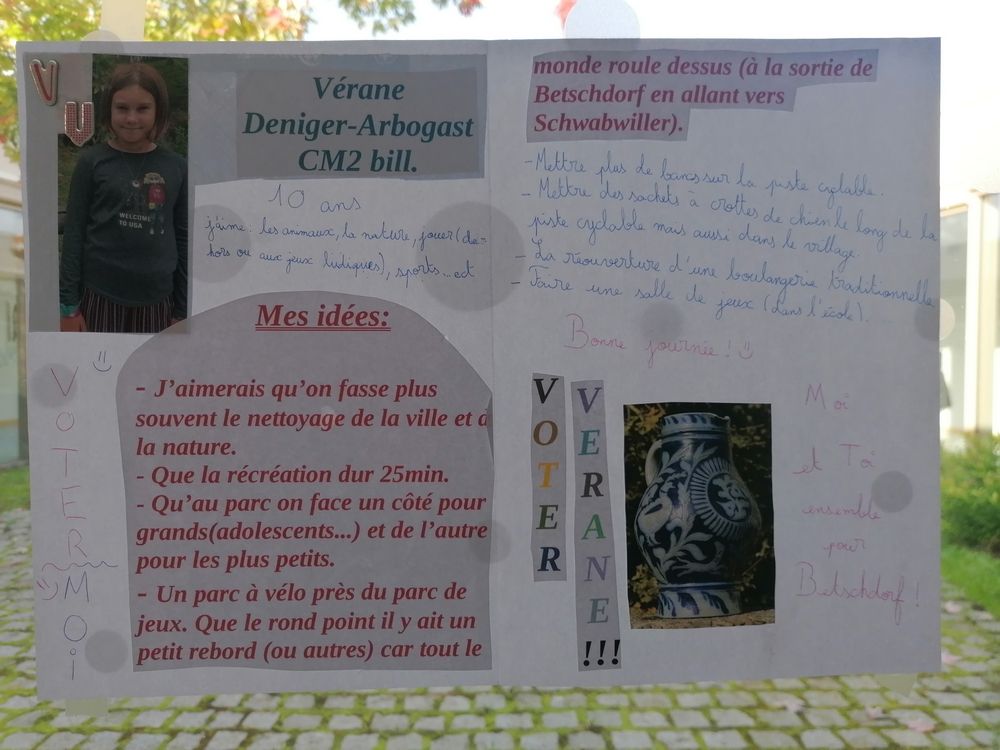 V
U
WELCOME
TO USA
Vérane
Deniger-Arbogast
CM2 bill.
10 ans
j'aime: les animaux, la nature, jouer (de-
hors ou aux jeux ludiques), sports...ect
Mes idées:
- J'aimerais qu'on fasse plus
souvent le nettoyage de la ville et d
la nature.
- Que la récréation dur 25min.
- Qu'au parc on face un côté pour
grands(adolescents...) et de l'autre
pour les plus petits.
- Un parc à vélo près du parc de
jeux. Que le rond point il y ait un
petit rebord (ou autres) car tout le
VOTER
MOi
monde roule dessus (à la sortie de
Betschdorf en allant vers
Schwabwiller).
- Mettre plus de bancs sur la piste cyclable.
- Mettre des sachets à crottes de chien le long de la
piste cyclable mais aussi dans le village.
- La réouverture d'une boulangerie traditionnelle
- Faire une salle de jeux (dans l'école).
Bonne journée !
VOTER
VERANE
!!!
Moi
et Toi
ensemble
pour
Betschdorf !